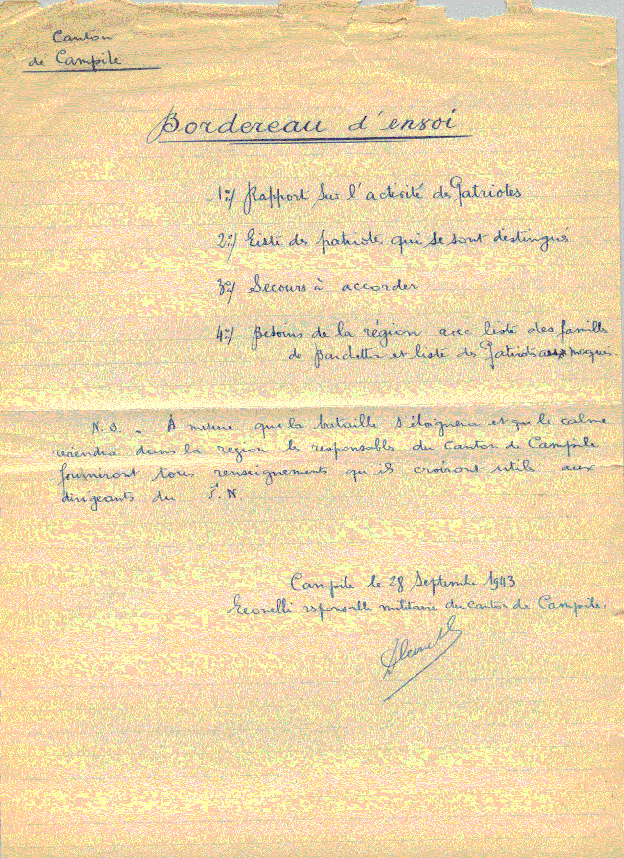 Canton
de Campile
Bordereau d'envoi
1º/ Rapport sur l'activité des Patriotes
2º/ Liste des patriotes qui se sont distingués
3º/ Secours à accorder
4º/ Besoins de la région avec liste des familles
de et liste des Patriotes
N.B. - A mesure que la bataille s'éloignera et que le calme
reviendra dans la region les responsables du Canton de Campile
fourniront tous renseignements qu'ils croiront utils aux
dirigeants du F.N.
Campile le 28 Septembre 1943
Leonelli responsable militaire du Canton de Campile.